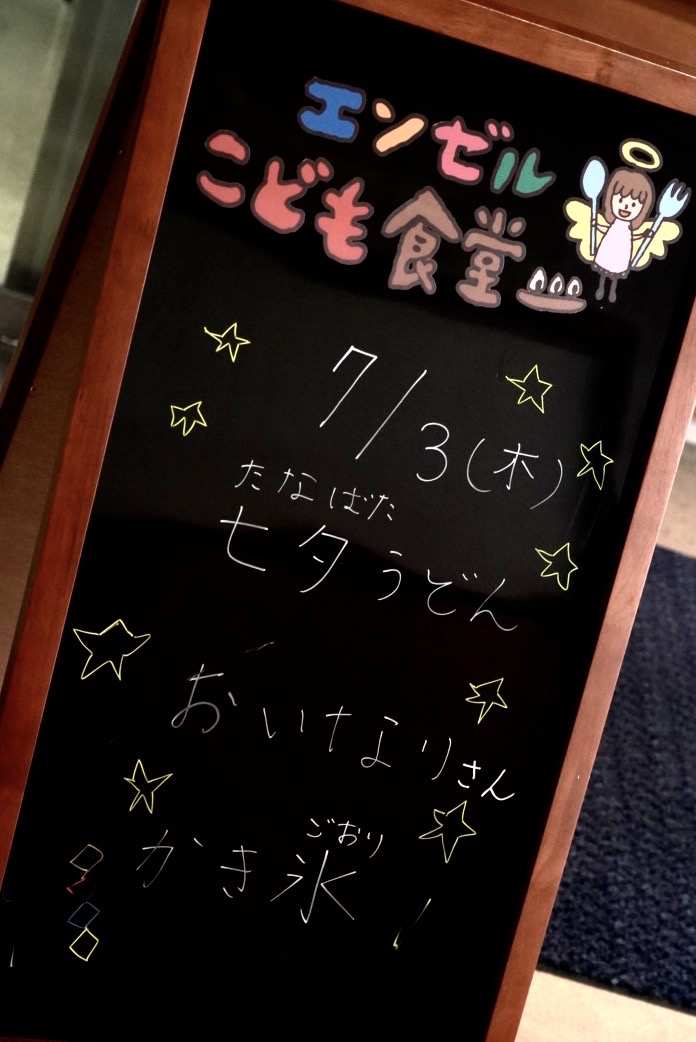 エンゼル
こども食堂
7/3(木)
たなばた
七夕うどん
おいなりさん
ごおり
かき氷